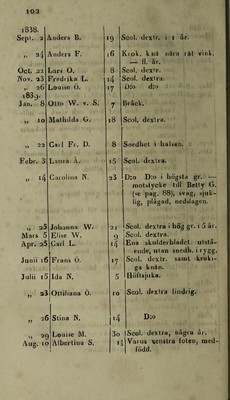 102
1838.
Sept. 2 Anders B. 19 Scol. dextr. i 1 år.
„ 24 Anders F. 16 Krok. knä nära rät vink.
— fl. år.
Oct. 22 Lars O. 8 Scol. dextr.
Nov. 23 Fredrika L. 14 Scol. dextra.
„ 26 Louise O. 17 D:o d:o
1839.
Jan. 8 Otto W. v. S. 7 Bråck.
„ 10 Mathilda G. 18 Scol. dextra.
„ 22 Carl Fr. D. 8 Sprödhet i halsen.
Febr. 3 Laura A. 15 Scol. dextra.
„ 14 Carolina N. 23 D:o D:o i högsta gr. —
motstycke till Betty G.
(se pag. 88), svag, sjuk-
lig, plågad, nedslagen.
„ 25 Johanna W. 21 Scol. dextra i hög gr. i 5 år.
Mars 5 Elise W. 9 Scol. dextra.
Apr. 25 Carl L. 14 Ena skulderbladet utstå-
ende, utan snedh. i rygg.
Junii 16 Frans O. 17 Scol. dextr. samt kroki-
ga knän.
Julii 15 Ida N. 5 Höftsjuka.
„ 23 Ottiliana O. 10 Scol. dextra lindrig.
„ 26 Stina N. 14 D:o
„ 29 Louise M. 30 Scol. dextra, några år.
Aug. 10 Albertina S. Varus venstra foten, med-
född.